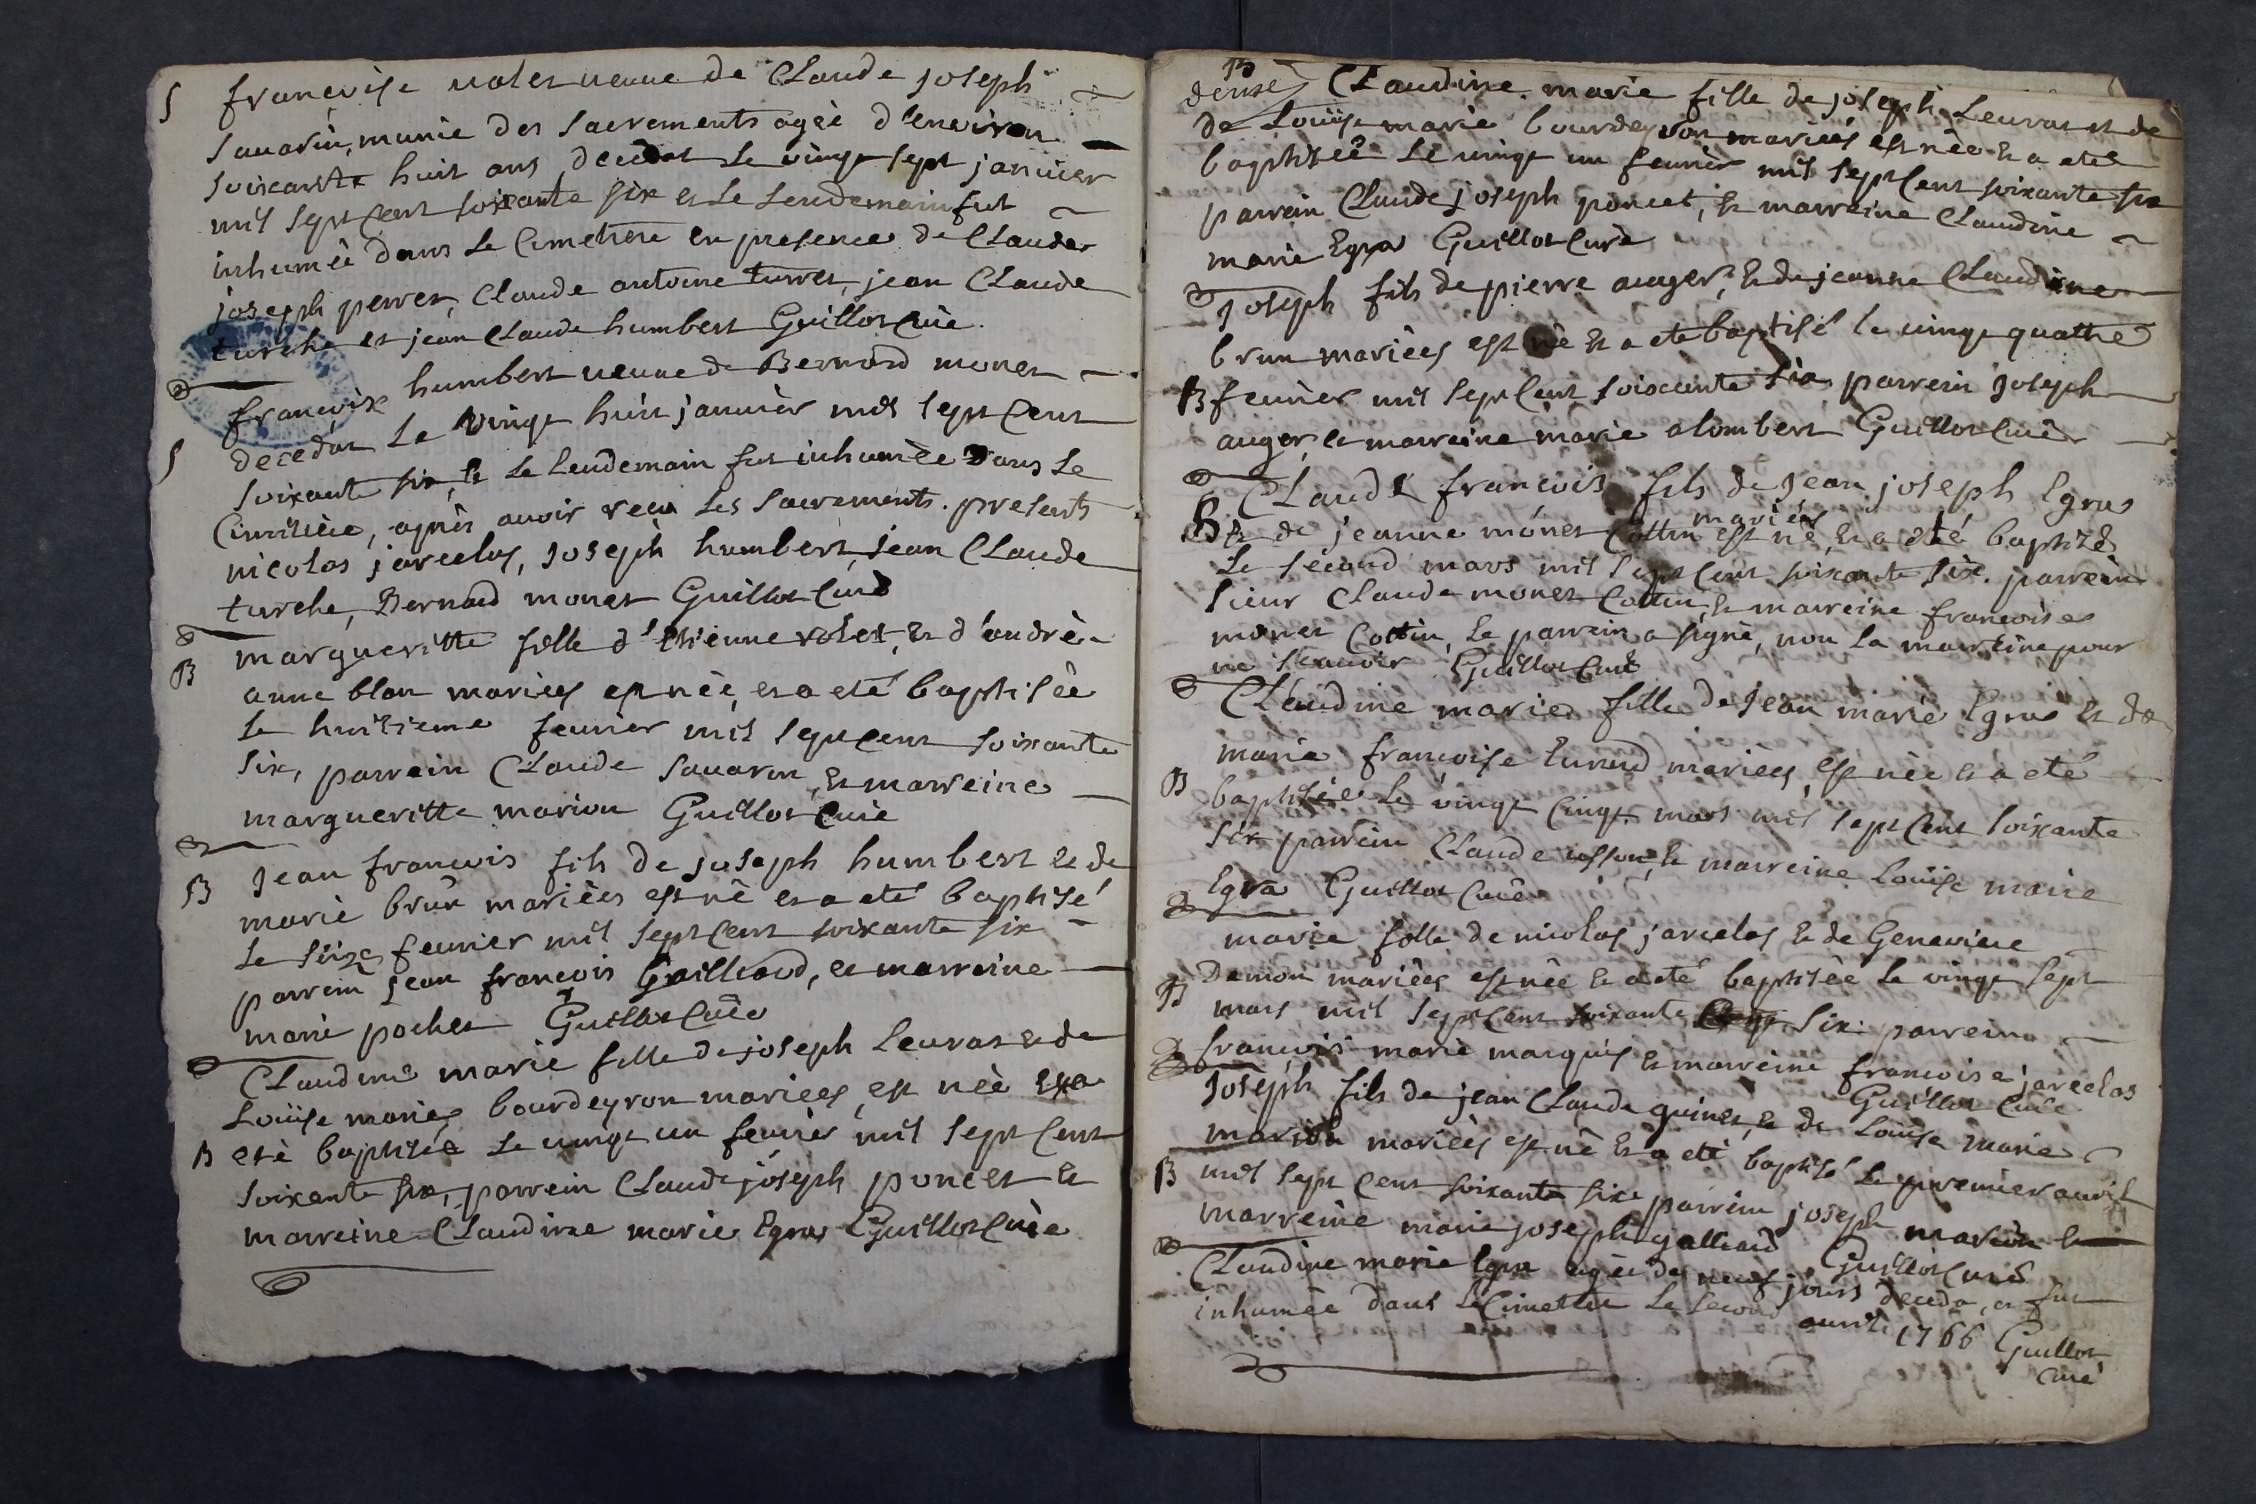 S francoise volet veuue de Claude joseph
Sauarin, munie des Sacrements agèe d'environ
soixante huit ans, decedat le vingt sept januier
mil sept Cent soixante six et Le Lendemain fut
inhumèe dans Le Cimetiere en presence de Claude
joseph perret, Claude antoine turrel, jean Claude
turche et jean Claude humbert Guillot Curè.
francoise humbert veuue de Bernard monet
S decedat Le vingt huit januièr mil sept Cent
soixante six, et Le Lendemain fut inhumèe Dans Le
Cimitière, après auoir recu Les Sacrements. presents
nicolas jarcelas, Joseph humbert, jean Claude
turche, Bernard monet Guillot Curè
B margueritte fille d'Etienne volet, et d'andrè
anne blan mariees est nèe, et a eté baptisèe
Le huitieme feurier mil sept cent soixante
six, parrein Claude Sauarin, et marreine
margueritte marion Guillot Curè
B Jean francois fils de joseph humbert et de
marie brun mariées est nè et a eté baptisé
Le seize feurier mil sept Cent soixante six
parrein jean francois Guilleard, et marreine
marie pochet Guillot Curè
Claudine marie fille de joseph Leuras et de
Loüise marie bourdeyron mariees, est nèe et a
B etè baptisée Le vingt un feurier mil sept Cent
soixante six, parrein Claude joseph poncet et
marreine Claudine marie Egras Guillot Curè
B
dense Claudine marie fille de joseph Leuras et de
de Loüise marie bourdeyron mariées est nèe et a etèe
baptisèe Le vingt un feurièr mil sept Cent soixante six
parrein Claude joseph poncet, et marreine Claudine
marie Egra Guillot Curè
Joseph fils de pierre auger, et de jeanne Claudine
brun mariées est nè et a etè baptisé le vingt quattre
B feurièr mil sept Cent soixante six parrein Joseph
auger, et marreine marie alombert Guillot Curè
Claude francois fils de Jean joseph Egras
mariés
B et de jeanne monet Cottin est nè, et a eté baptisè
Le second mars mil sept Cent soixante six. parrein
sieur Claude monet Cottin, et marreine francoise
monet Cottin, Le parrein a signè, non La marreine pour
ne scauoir Guillot Curè
Claudine marie fille de Jean marie Egras et de
marie francoise mariées, est nèe et a eté
B baptisèe Le vingt Cinq mars mil sept Cent soixante
six parrein Claude et marreine Loüise marie
Egra Guillot Curè
marie fille de nicolas jarcelas et de Genevieve
B Damon mariées est nèe et a eté baptisèe Le vingt sept
mars mil sept Cent soixante six: parrein
francois marie marquis et marreine francoise jarcelas
Guillot Curè
Joseph fils de jean Claude guinet, et de Loüise marie
marion mariées est nè et a eté baptisé Le premier auril
B mil sept Cent soixante six. parrein joseph marion et
marreine marie joseph galleard Guillot Curè
Claudine marie Egra agèe de neuf jours deceda, et fut
inhumèe dans le Cimetiere Le second auril 1766 Guillot
Curè